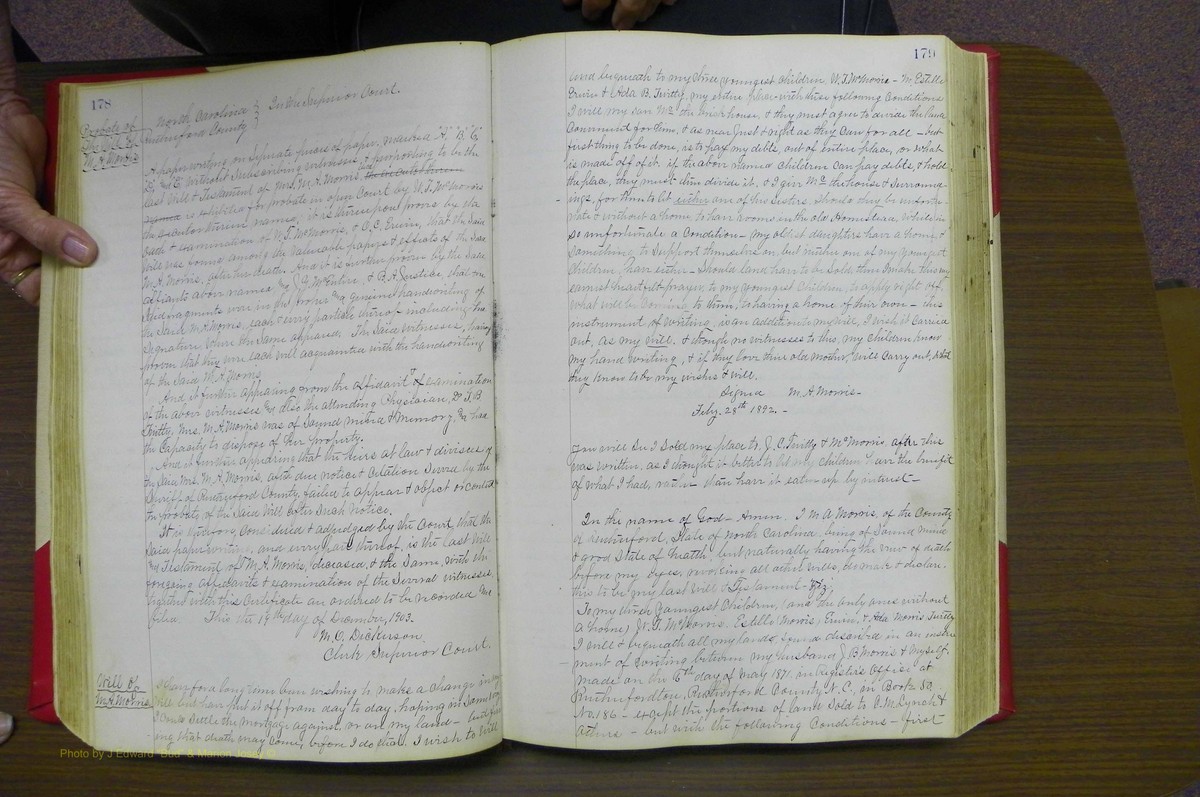 178
Probate of
the Will of
M.A. Morris
North Carolina } In the Superior Court.
Rutherford County }
A paper writing on separate pieces of paper, marked "A" "B" "C"
D, and E, without subscribing witnesses, & purporting to be the
last Will & Testament of Mrs. M. A. Morris,
is exhibited for probate in open Court by W. T. McMorris
the executor therein named; it is thereupon proven by the
oath & examination of W. T. McMorris, & O. C. Erwin, that the said
Will was found among the valuable papers & effects of the said
M. A. Morris, after her death. And it is further proven by the said
affiants above named, and J. M. McEntire, & B. A. Justice, that
in the proper and genuine handwriting of
the said M. A. Morris, each & every particle thereof including the
signature when the same appeared. The said witnesses, having
proven that they were each well acquainted with the handwriting
of the said M. A. Morris
And it further appearing from the affidavit & examination
of the above witnesses and also the attending Physician, Dr. T. B.
Twitty, Mrs. M. A. Morris was of sound mind & memory, and had
the Capacity to dispose of her property.
And it further appearing that the heirs at law & devisees of
the said Mrs. M. A. Morris, after due notice & Citation served by the
Sheriff of Rutherford County, failed to appear & object or contest
the probate of the said Will after such notice.
It is therefore, Considered & adjudged by the Court, that the
said paper writing, and every part thereof, is the last Will
and Testament of M. A. Morris, deceased, & the same, with the
foregoing affidavits & examination of the several witnesses
together with this Certificate are ordered to be recorded and
filed. This the 19th day of December, 1903.
M. O. Dickerson
Clerk Superior Court.
Will of
M. A. Morris
I have for a long time been wishing to make a change in my
Will, but have put it off from day to day, hoping in some way
I could settle the mortgage against, or on my land -
ing that death may come, before I do that. I wish to Will
179
and bequeath to my three youngest children, W. T. McMorris - M. Estelle
Erwin & Ada B. Twitty, my entire place with these following Conditions
I will my son Mc the brick house, & they must agree to divide the land
Convenient for him, & as near just & right as they can for all - but
first thing to be done, is to pay my debts, out of entire place, or what
is made off of it. if the above named children can pay debts, & hold
the place, they must then divide it. & I give Mc the house & surround-
ings, for him to let either one of his sisters, should they be unfortu-
nate & without a home, to have rooms in the old Homestead, while in
so unfortunate a Condition - my oldest daughters have a home &
something to support themselves on, but neither one of my youngest
children, have either - Should land have to be sold, then I make this my
earnest heartfelt prayer, to my youngest Children, to apply right off,
what will be coming to them, to having a home of their own - this
instrument of writing, is an addition to my Will, I wish it carried
out, as my will. & though no witnesses to this, my children know
my hand writing, & if they love their old mother, will carry out, what
they know to be my wishes & will.
Signed M. A. Morris -
Feby. 28th 1892. -
You will see I sold my place to J. C. Twitty & McMorris, after this
was written, as I thought it better to let my children have the benefit
of what I had, rather than have it eaten up by interest -
In the name of God - Amen. I M. A. Morris, of the County
of Rutherford, State of North Carolina, being of sound mind
& good State of health, but naturally having the view of death
before my eyes, revoking all other wills, do make & declare
this to be my last Will & Testament - Viz;
To my three youngest Children, (and the only ones without
a home) W. T. McMorris, Estelle (Morris) Erwin, & Ada Morris Twitty
I will & bequeath all my lands, found described in an instru-
ment of writing between my husband J. B. Morris & myself.
made on the 6th day of May 1871. in Register's Office at
Rutherfordton, Rutherford County N. C., in Book 30.
No. 186 - except the portions of land Sold to O. M. Lynch &
others - but with the following Conditions - first
Photo by J Edward "Bud" & Marion